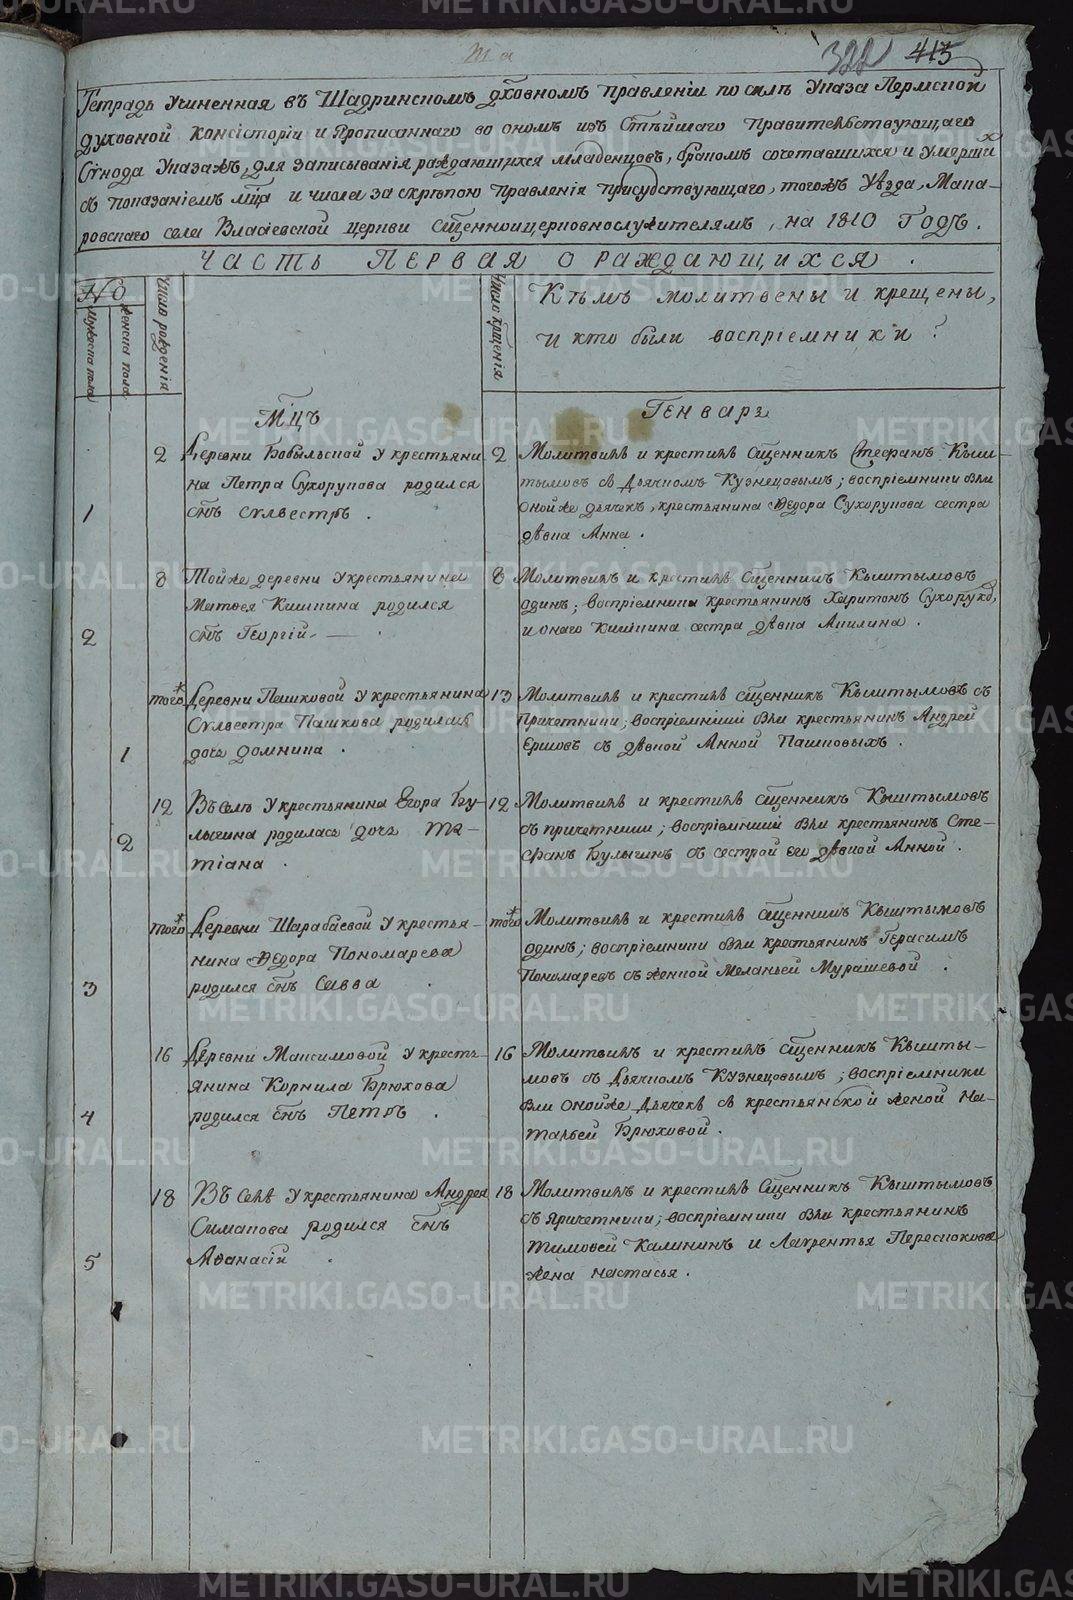 322 415
Тетрадь Учиненная въ Шадринскомъ дховномъ правленіи по силѣ Указа Пермской
духовной консисторіи и прописаннаго во ономъ изъ Стѣйшаго правительствующаго
Сѵнода Указахъ, для записыванія раждающихся младенцовъ, бракомъ сочетавшихся и умершихъ
съ показаніемъ мца и числа за скрѣпою правленія присудствующаго, тогожъ уѣзда, Мака-
ровскаго села Власіевской церкви Сщенноицерковнослужителямъ, на 1810 годъ.
Часть Первая о раждающихся.
№
Мужеска пола
Женска пола
Число рожденія
Число крщенія
Кѣмъ молитвены и крещены,
и кто были воспріемники?
Мцъ Генварь
2 Деревни Бобыльской у крестьяни-
на Петра Сухорукова родился
1 снъ Сѵлвестръ.
2 Молитвилъ и крестилъ сщенникъ Стефанъ Кыш-
тымовъ съ дьячкомъ Кузнецовымъ; воспріемники были
онойже дьячекъ, крестьянина Ѳедора Сухорукова сестра
дѣвка Анна.
8 Тойже деревни у крестьянина
Матвея Кишкина родился
2 снъ Георгій.
8 Молитвилъ и крестилъ сщенникъ Кыштымовъ
одинъ; воспріемники крестьянинъ Харитонъ Сухоруковъ,
и онаго Кишкина сестра дѣвка Акилина.
того ж Деревни Пашковой у крестьянина
Сѵлвестра Пашкова родилась
1 дочь Домника.
13 Молитвилъ и крестилъ сщенникъ Кыштымовъ съ
причетники; воспріемники были крестьянинъ Андрей
Ершовъ съ дѣвкой Анной Пашковыхъ.
12 Въ селѣ у крестьянина Егора Бу-
лыгина родилась дочь Та-
2 тіана.
12 Молитвилъ и крестилъ сщенникъ Кыштымовъ
съ причетники; воспріемники были крестьянинъ Сте-
фанъ Булыгинъ съ сестрой его дѣвкой Анной.
того ж Деревни Шарабаевой у крестья-
нина Ѳедора Пономарева
3 родился снъ Савва.
того ж Молитвилъ и крестилъ сщенникъ Кыштымовъ
одинъ; воспріемники были крестьянинъ Герасимъ
Пономаревъ съ женкой Меланьей Мурашевой.
16 Деревни Максимовой у кресть-
янина Корнила Брюхова
4 родился снъ Петръ.
16 Молитвилъ и крестилъ сщенникъ Кышты-
мовъ съ дьячкомъ Кузнецовымъ; воспріемники
были онойже дьячекъ съ крестьянской женой На-
тальей Брюховой.
18 Въ селѣ у крестьянина Андрея
Симакова родился снъ
5 Аѳанасій.
18 Молитвилъ и крестилъ сщенникъ Кыштымовъ
съ причетники; воспріемники были крестьянинъ
Тимоѳей Калининъ и Лаврентья Перескокова
жена Настасья.
METRIKI.GASO-URAL.RU